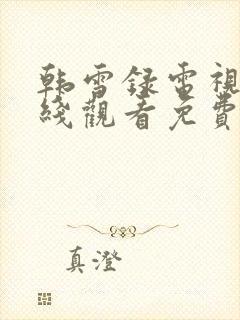 韩雪录電視
綫觀看免費
真澄